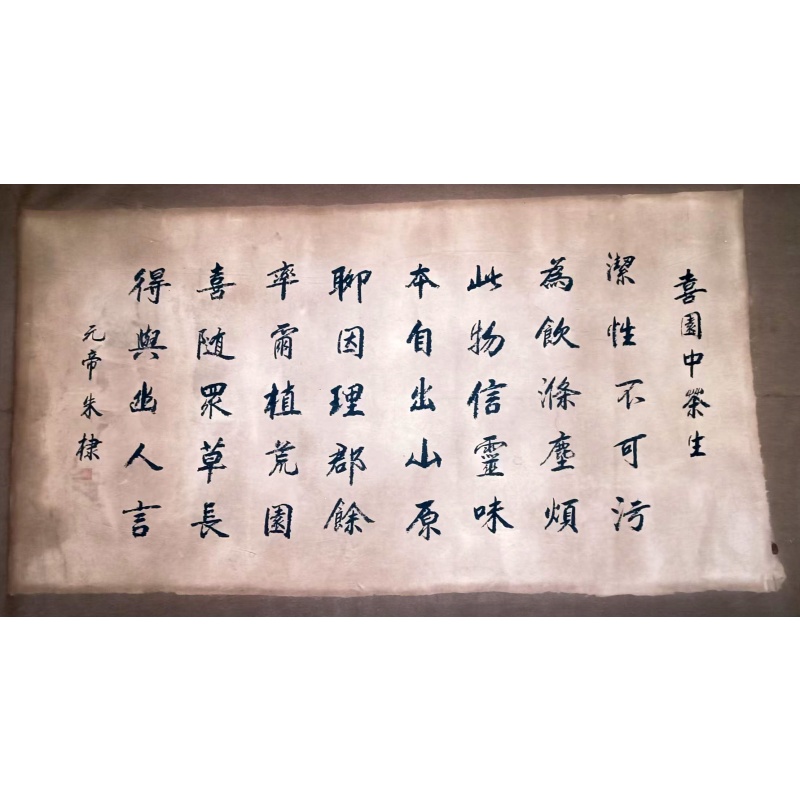 喜園中茶生
潔性不可污
為飲滌塵煩
此物信靈味
本自出山原
聊因理郡餘
率爾植荒園
喜随眾草長
得與幽人言
元帝朱棣